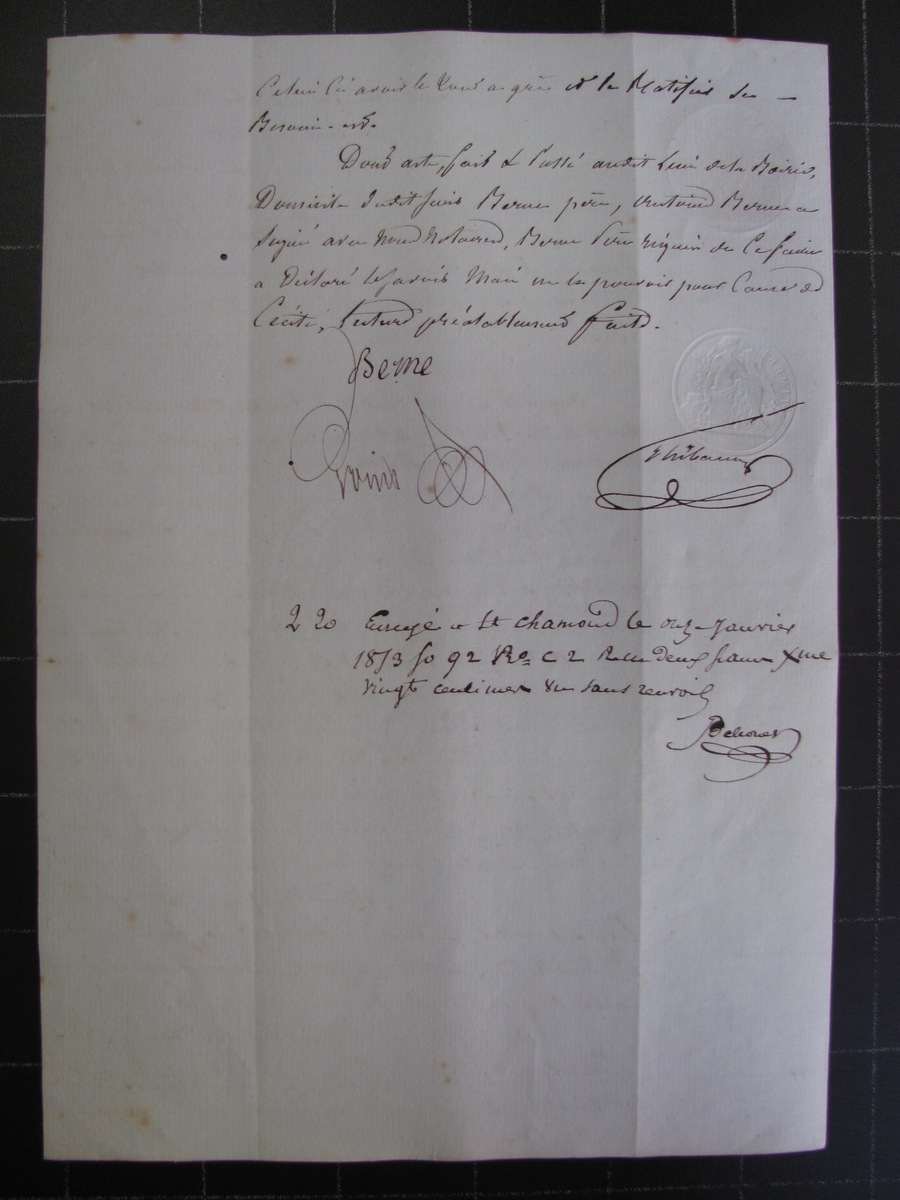 avoir le tout a gré et le Ratifier de —
Besoin est.
Dont acte, fait & Passé audit lieu de la Boirie,
Domicile dudit sieur Berne père, Antoine Berne a
signé avec nous Notaires, Berne Père requis de le faire
a Déclaré le savoir Mais ne le pouvoir pour Cause de
Cécité, lecture préalablement faite.
Berne
Thibaud
2 20 Enregé a St chamond le onze Janvier
1873 fo 92 Ro c 2 Reçu deux francs Xme
vingt centimes sans renvoi